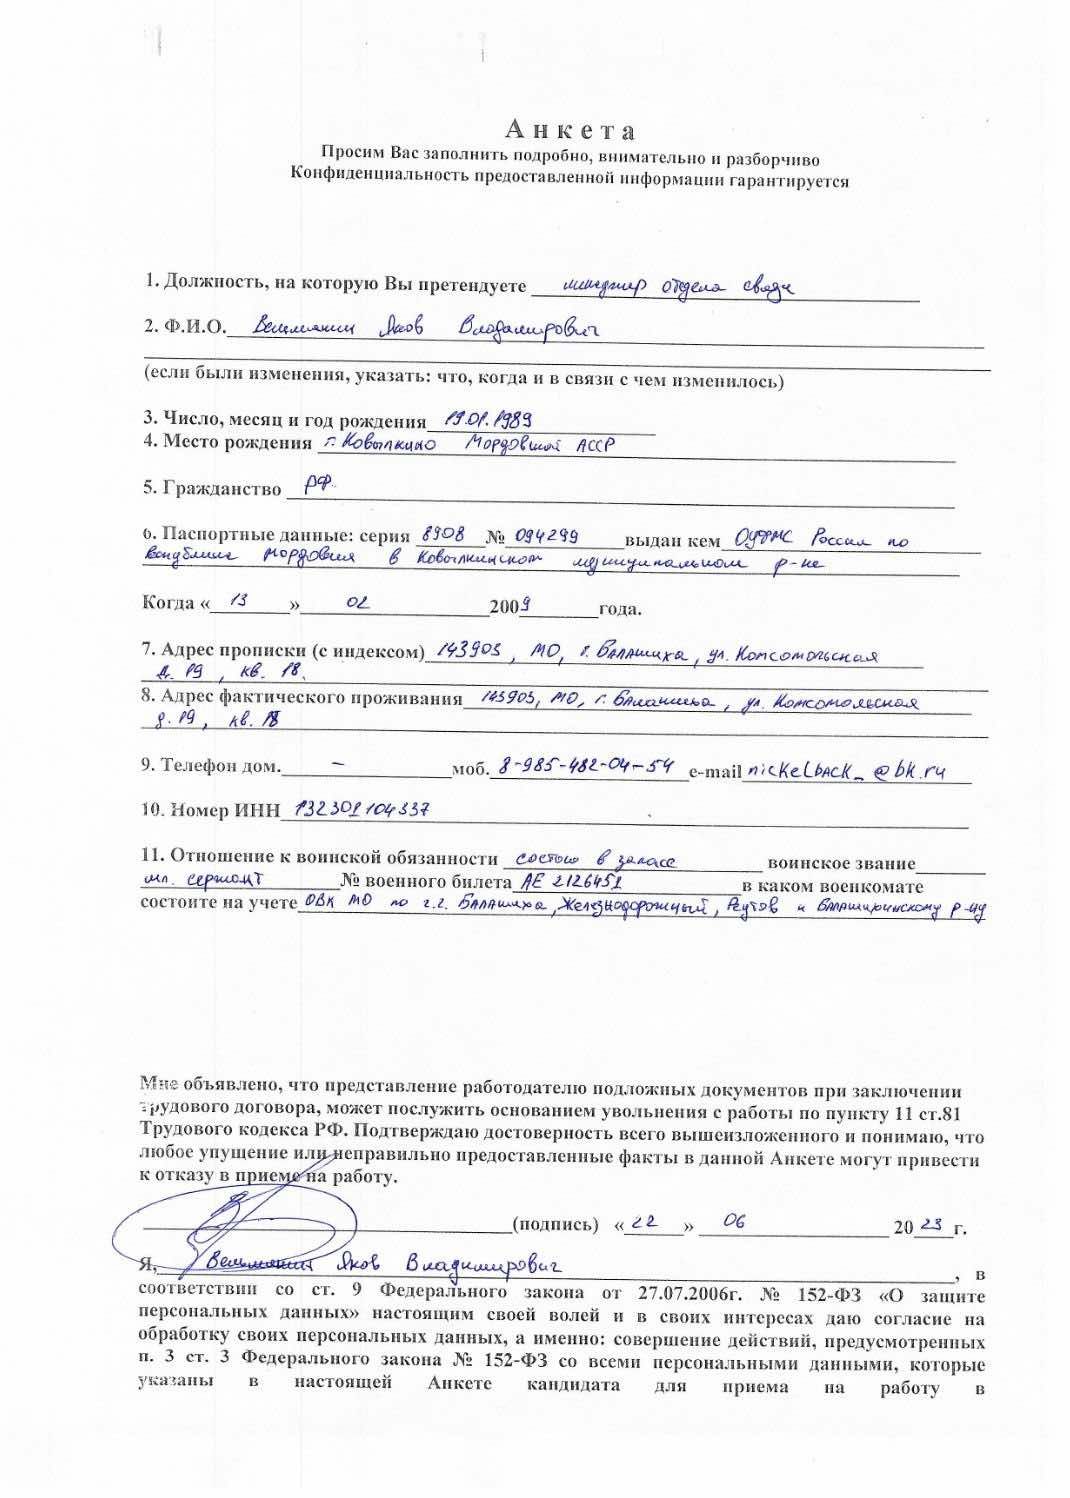 Анкета
Просим Вас заполнить подробно, внимательно и разборчиво
Конфиденциальность предоставленной информации гарантируется
1. Должность, на которую Вы претендуете менеджер отдела связи
2. Ф.И.О. Яков Владимирович
(если были изменения, указать: что, когда и в связи с чем изменилось)
3. Число, месяц и год рождения 19.01.1989
4. Место рождения г. Ковылкино Мордовской АССР
5. Гражданство РФ.
6. Паспортные данные: серия 8908 № 094299 выдан кем ОУФМС России по
Мордовия в Ковылкинском муниципальном р-не
Когда « 13 » 02 2009 года.
7. Адрес прописки (с индексом) 143903, МО, г. Балашиха, ул. Комсомольская
д. 19, кв. 18.
8. Адрес фактического проживания 143903, МО, г. Балашиха, ул. Комсомольская
д. 19, кв. 18
9. Телефон дом. – моб. 8-985-482-04-54 e-mail nickelback_@bk.ru
10. Номер ИНН 132301104337
11. Отношение к воинской обязанности состою в запасе воинское звание
мл. сержант № военного билета АЕ 2126451 в каком военкомате
состоите на учете ОВК МО по г.г. Балашиха, Железнодорожный, Реутов и Балашихинскому р-ну
Мне объявлено, что представление работодателю подложных документов при заключении
трудового договора, может послужить основанием увольнения с работы по пункту 11 ст.81
Трудового кодекса РФ. Подтверждаю достоверность всего вышеизложенного и понимаю, что
любое упущение или неправильно предоставленные факты в данной Анкете могут привести
к отказу в приеме на работу.
(подпись) « 22 » 06 2023 г.
Я, Яков Владимирович, в
соответствии со ст. 9 Федерального закона от 27.07.2006г. № 152-ФЗ «О защите
персональных данных» настоящим своей волей и в своих интересах даю согласие на
обработку своих персональных данных, а именно: совершение действий, предусмотренных
п. 3 ст. 3 Федерального закона № 152-ФЗ со всеми персональными данными, которые
указаны в настоящей Анкете кандидата для приема на работу в